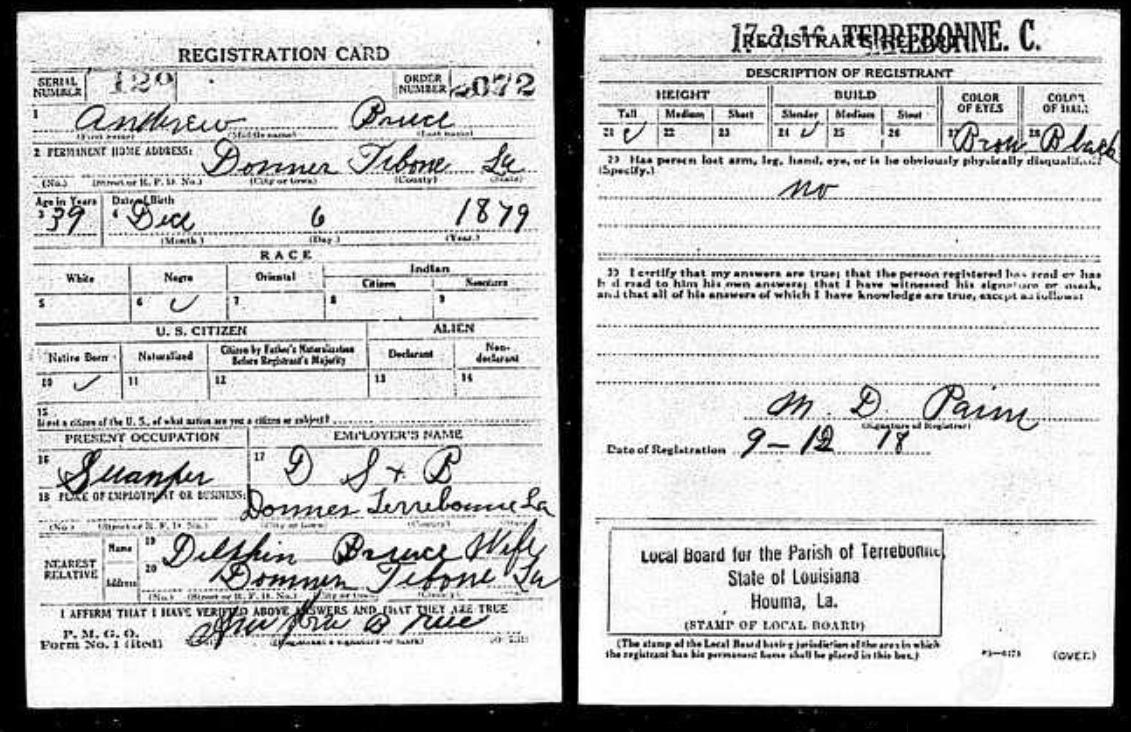 REGISTRATION CARD
SERIAL NUMBER 129
ORDER NUMBER 2072
1 Andrew Bruce
(First name) (Middle name) (Last name)
2 PERMANENT HOME ADDRESS: Donner Tebone La
(No.) (Street or R. F. D. No.) (City or town) (County) (State)
Age in Years Date of Birth
3 39 4 Dec 6 1879
(Month) (Day) (Year)
RACE
White Negro Oriental Indian
Citizen Noncitizen
5 6 ✓ 7 8 9
U. S. CITIZEN ALIEN
Native Born Naturalized Citizen by Father's Naturalization Before Registrant's Majority Declarant Non-declarant
10 ✓ 11 12 13 14
15
If not a citizen of the U. S., of what nation are you a citizen or subject?
PRESENT OCCUPATION EMPLOYER'S NAME
16 17 D S + B
18 PLACE OF EMPLOYMENT OR BUSINESS: Donner Terrebonne La
(No.) (Street or R. F. D. No.) (City or town) (County) (State)
NEAREST RELATIVE Name 19 Delphin Bruce Wife
Address 20 Donner Tebone La
(No.) (Street or R. F. D. No.) (City or town) (County) (State)
I AFFIRM THAT I HAVE VERIFIED ABOVE ANSWERS AND THAT THEY ARE TRUE
P. M. G. O.
Form No. 1 (Red) Andrew Bruce
(Registrant's signature or mark)
17-2-16 TERREBONNE. C.
REGISTRAR'S REPORT
DESCRIPTION OF REGISTRANT
HEIGHT BUILD COLOR OF EYES COLOR OF HAIR
Tall Medium Short Slender Medium Stout
21 ✓ 22 23 24 ✓ 25 26 27 Brow 28 Black
29 Has person lost arm, leg, hand, eye, or is he obviously physically disqualified?
(Specify.)
no
30 I certify that my answers are true; that the person registered has read or has
had read to him his own answers; that I have witnessed his signature or mark,
and that all of his answers of which I have knowledge are true, except as follows:
M D
(Signature of Registrar)
Date of Registration 9-12 18
Local Board for the Parish of Terrebonne,
State of Louisiana
Houma, La.
(STAMP OF LOCAL BOARD)
(The stamp of the Local Board having jurisdiction of the area in which
the registrant has his permanent home shall be placed in this box.)
(OVER)